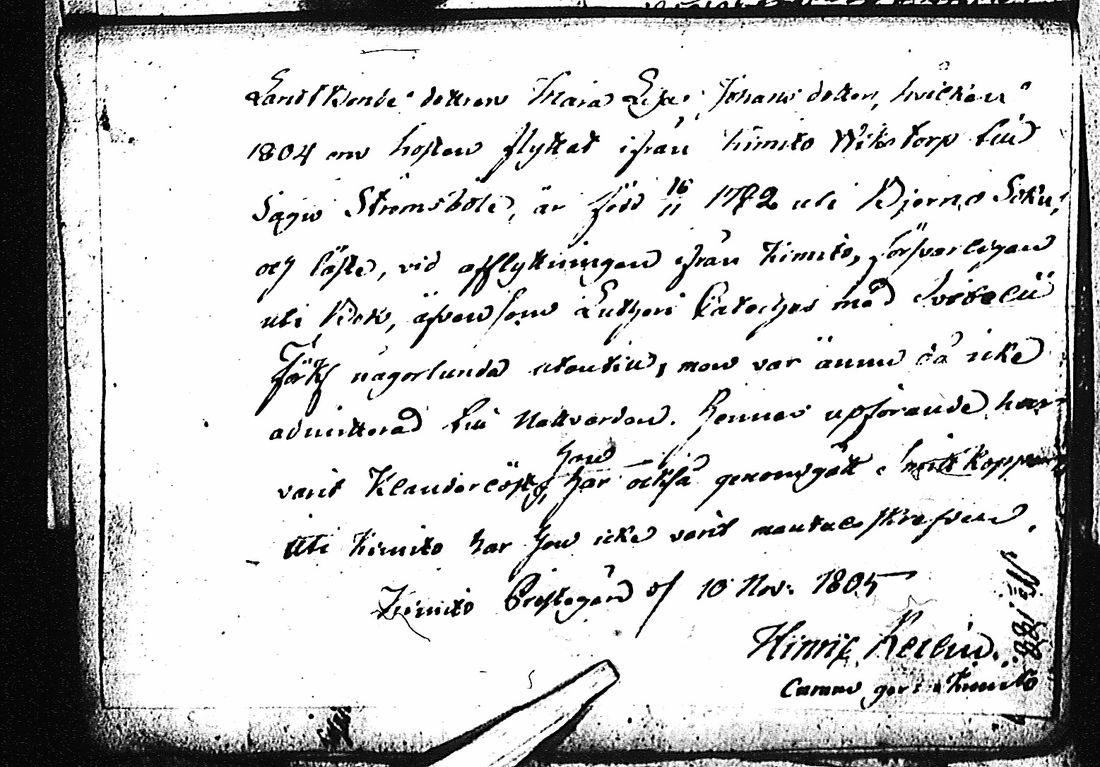 LandtBonde dottren Maria Lisa Johans dotter, hvilken
1804 om hösten flyttat ifrån Kimito Wikstorp till
Sagu Strömsböle, är född 16/11 1782 uti Bjerno Sokn,
och läste, vid afflyttningen ifrån Kimito, försvarligen
uti Bok, äfven som Lutheri Cateches med Svebelii
någorlunda utantill, men var ännu då icke
admitterad till Nattvarden. Hennes upförande har
varit Klanderlöst, hon har också genomgått
Uti Kimito har hon icke varit mantals skrefven.
Kimito Prestegård d 10 Nov. 1805
Hinric
Kimito
N:o 188